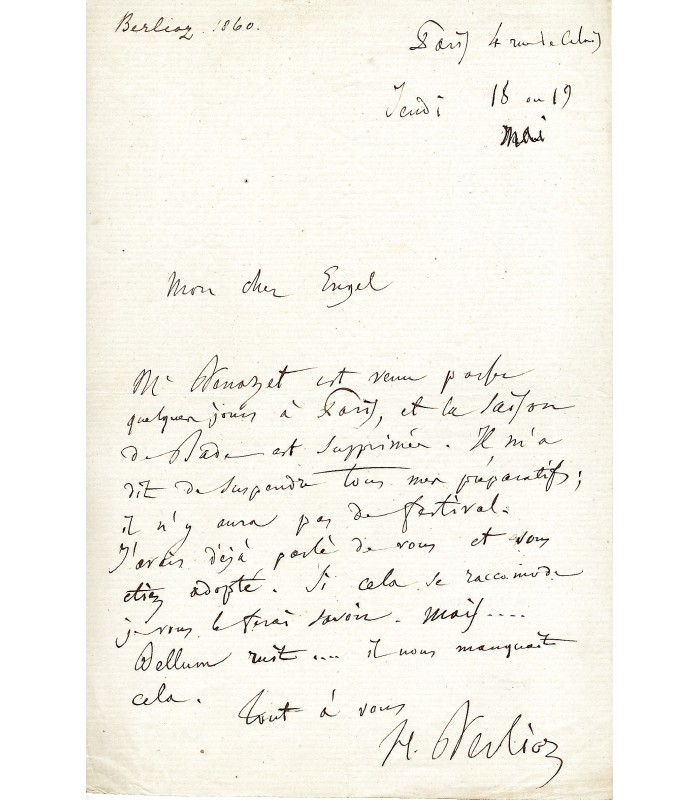 Berlioz 1860.
Paris 4 rue de Calais
Jeudi 18 ou 19
Mai
Mon cher Engel
Mr Benazet est venu passer
quelques jours à Paris, et la saison
de Bade est supprimée. Il m'a
dit de suspendre tous mes préparatifs;
il n'y aura pas de festival.
J'avais déjà parlé de vous et vous
étiez adopté. Si cela se raccomode
je vous le ferai savoir. Mais....
Bellum ruit .... il nous manquait
cela.
Tout à vous
H. Berlioz